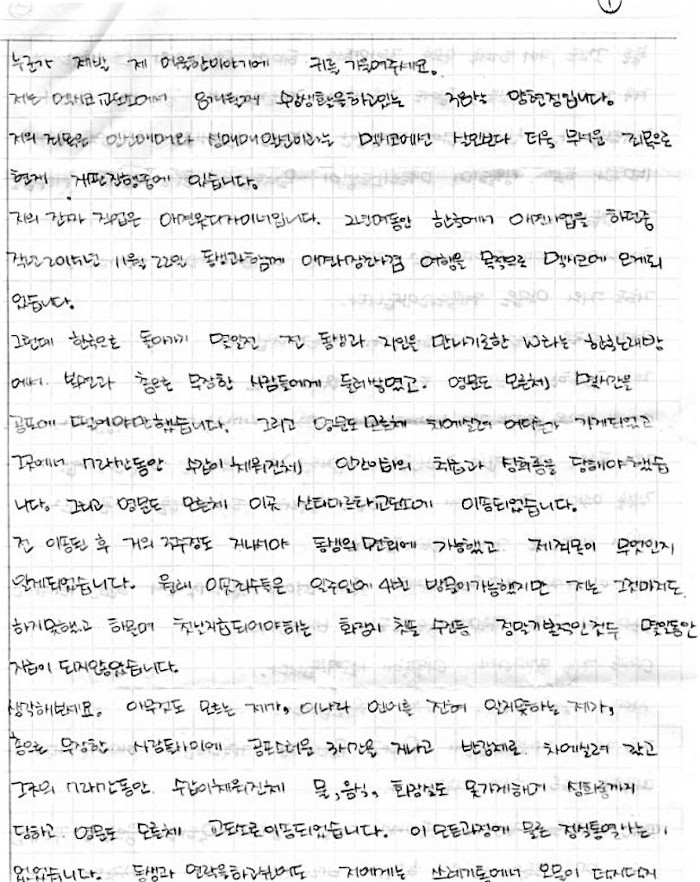 ①
누군가 제발 제 억울한이야기에 귀를 기울여주세요.
저는 멕시코교도소에서 8개월째 수감생활을하고있는 양현정입니다.
저의 죄목은 인신매매와 성매매알선이라는 멕시코에선 살인보다 더욱 무서운 죄목으로
현재 재판진행중에 있습니다.
저의 직업은 애견옷디자이너입니다. 한국에서 애견사업을 하던중
작년2015년 11월 22일 동생과함께 여행을 목적으로 멕시코에 오게되
었습니다.
그런데 한국으로 돌아가기 몇일전 전 동생과 지인을 만나기로한 W라는 한국노래방
에서 복면과 총으로 무장한 사람들에게 둘러쌓였고. 영문도 모른체, 몇시간을
공포에 떨어야만했습니다. 그리고 영문도모른체 차에실려 어딘가 가게되었고
그곳에서 시간동안 수갑이채워진체 인간이하의 취급과 성희롱을 당해야했습
니다. 그리고 영문도 모른체 이곳 산타마르타교도소에 이송되었습니다.
전 이송된 후 거의 정도 지나서야 동생의면회가 가능했고 제죄목이 무엇인지
알게되었습니다. 원래 이곳죄수들은 일주일에 4번 방문이가능했지만 저는 그것마저도
하지못했고 하물며 지급되어야하는 화장지 칫솔 수건등 정말기본적인것도 몇일동안
지급이 되지않았었습니다.
생각해보세요. 아무것도 모르는 제가, 이나라 언어를 전혀 알지못하는 제가,
총으로 무장한 사람들사이에 공포스러운 시간을 지나고 반강제로 차에실려 갔고
그곳의 시간동안 수갑이채워진체 물, 음식, 화장실도 못가게하며 성희롱까지
당하고 영문도 모른체 교도소로이송되었습니다. 이 모든과정에 물론 정식통역사는
없었습니다. 동생과 연락을하고싶어도 저에게는 쓰레기통에서